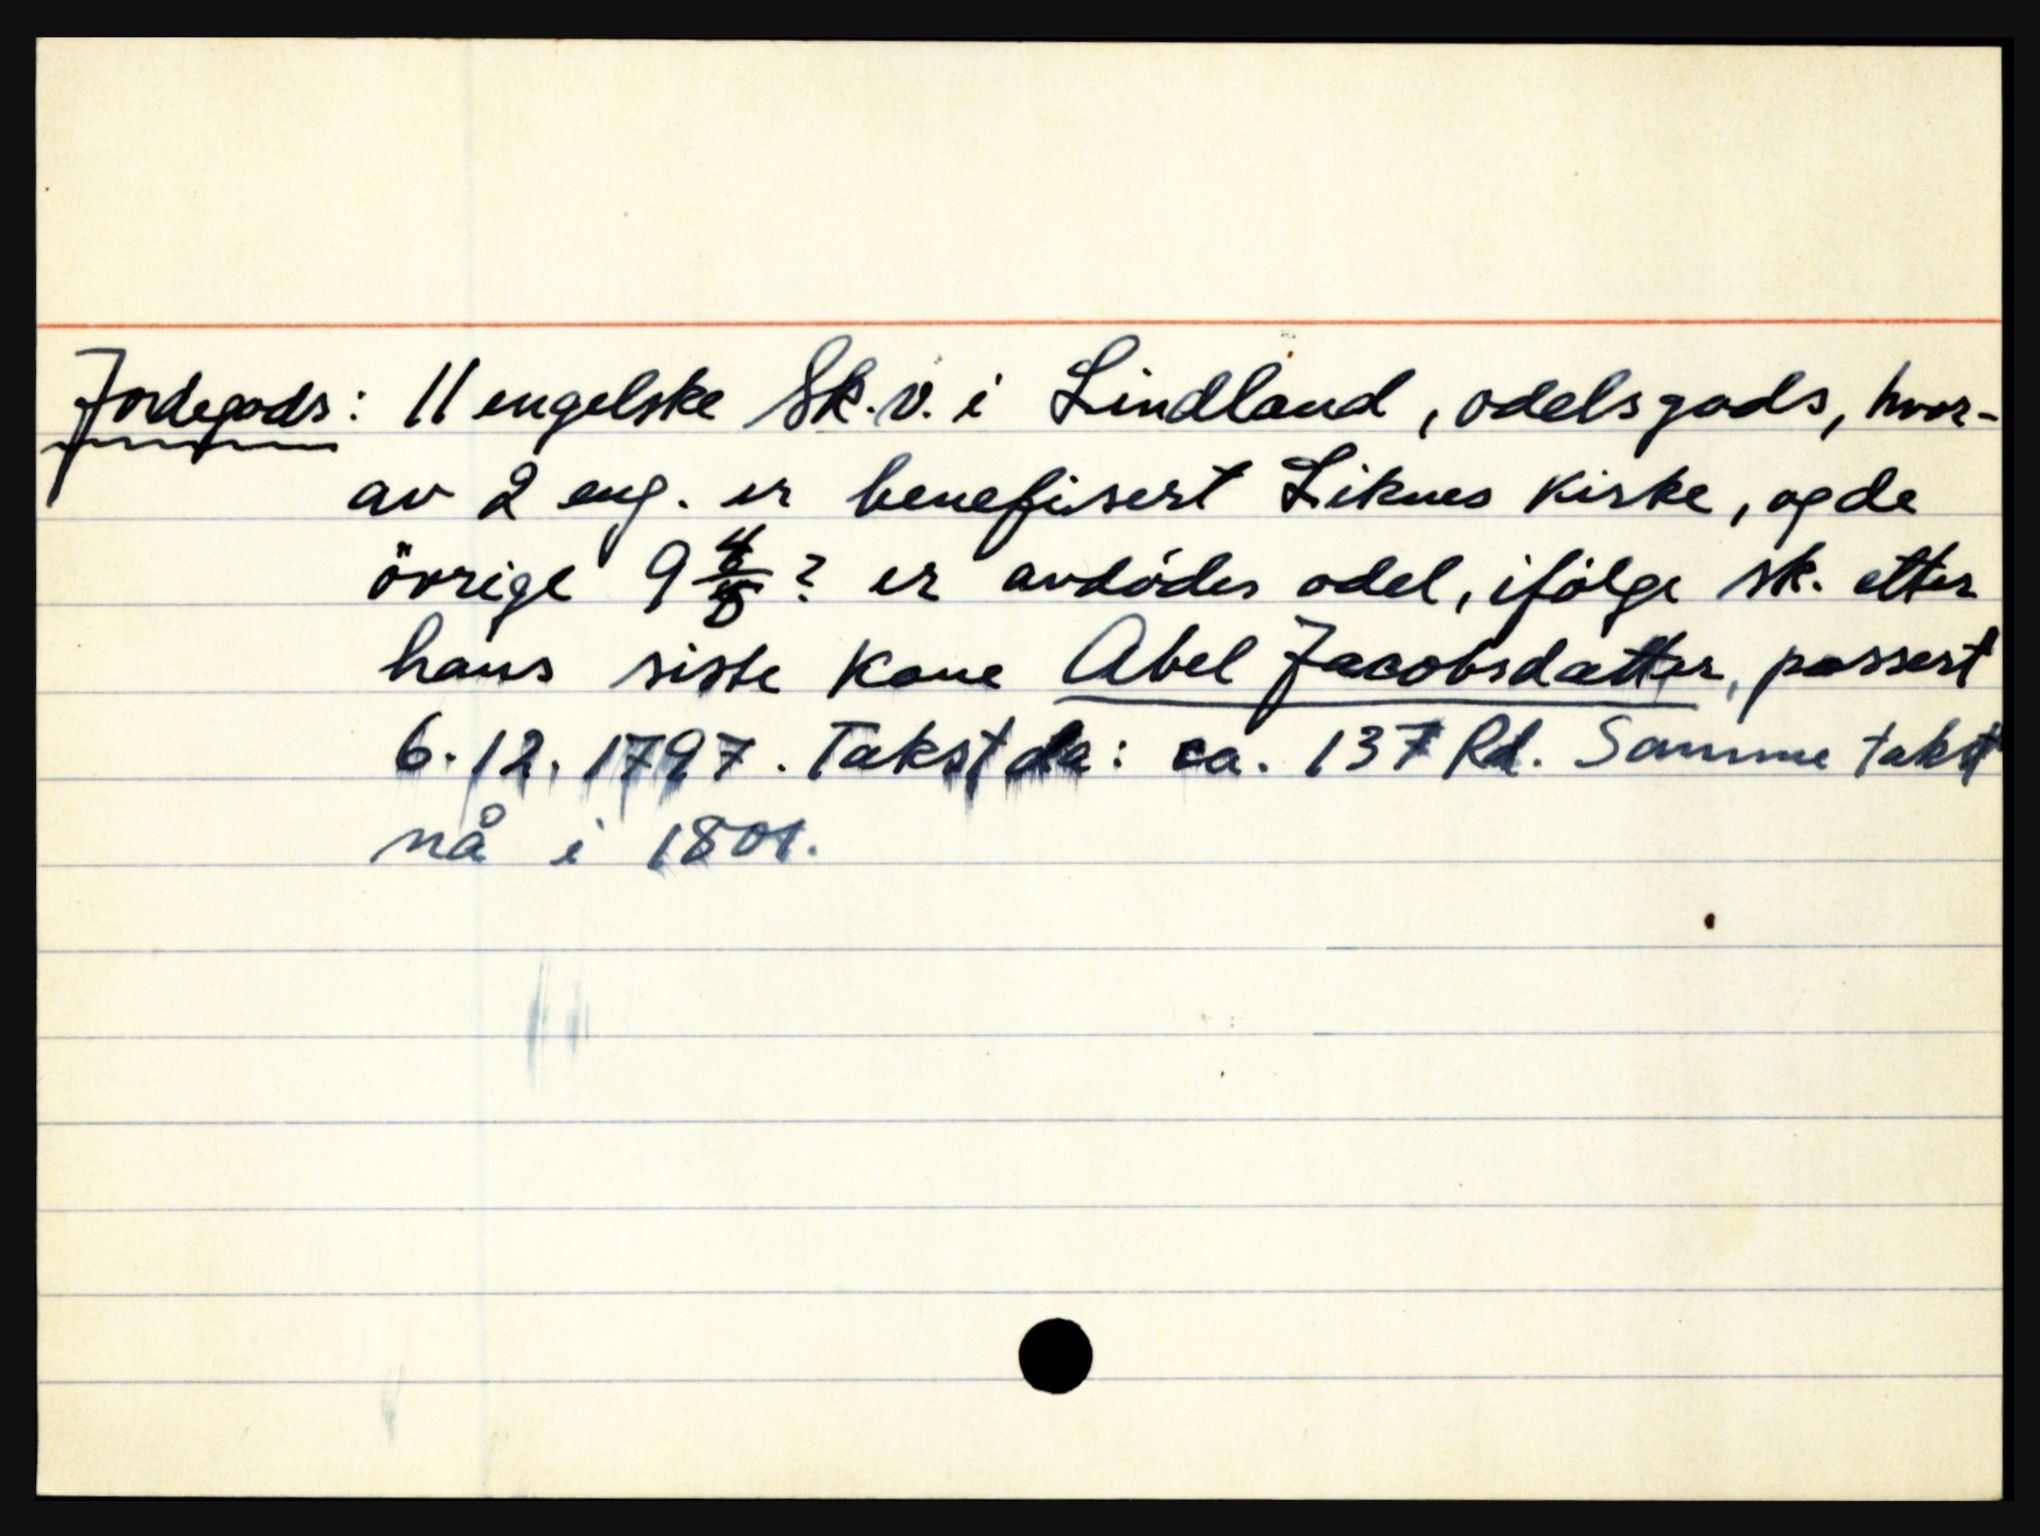 Jordegods: 11 engelske Sk.v. i Lindland, odelsgods, hvor-
av 2 eng. er benefisert Liknes kirke, og de
övrige 9 ? er avdødes odel, ifølge sk. etter
hans siste kone Abel Jacobsdatter, passert
6.12.1797. Takst da: ca. 137 Rd. Samme takst
nå i 1801.